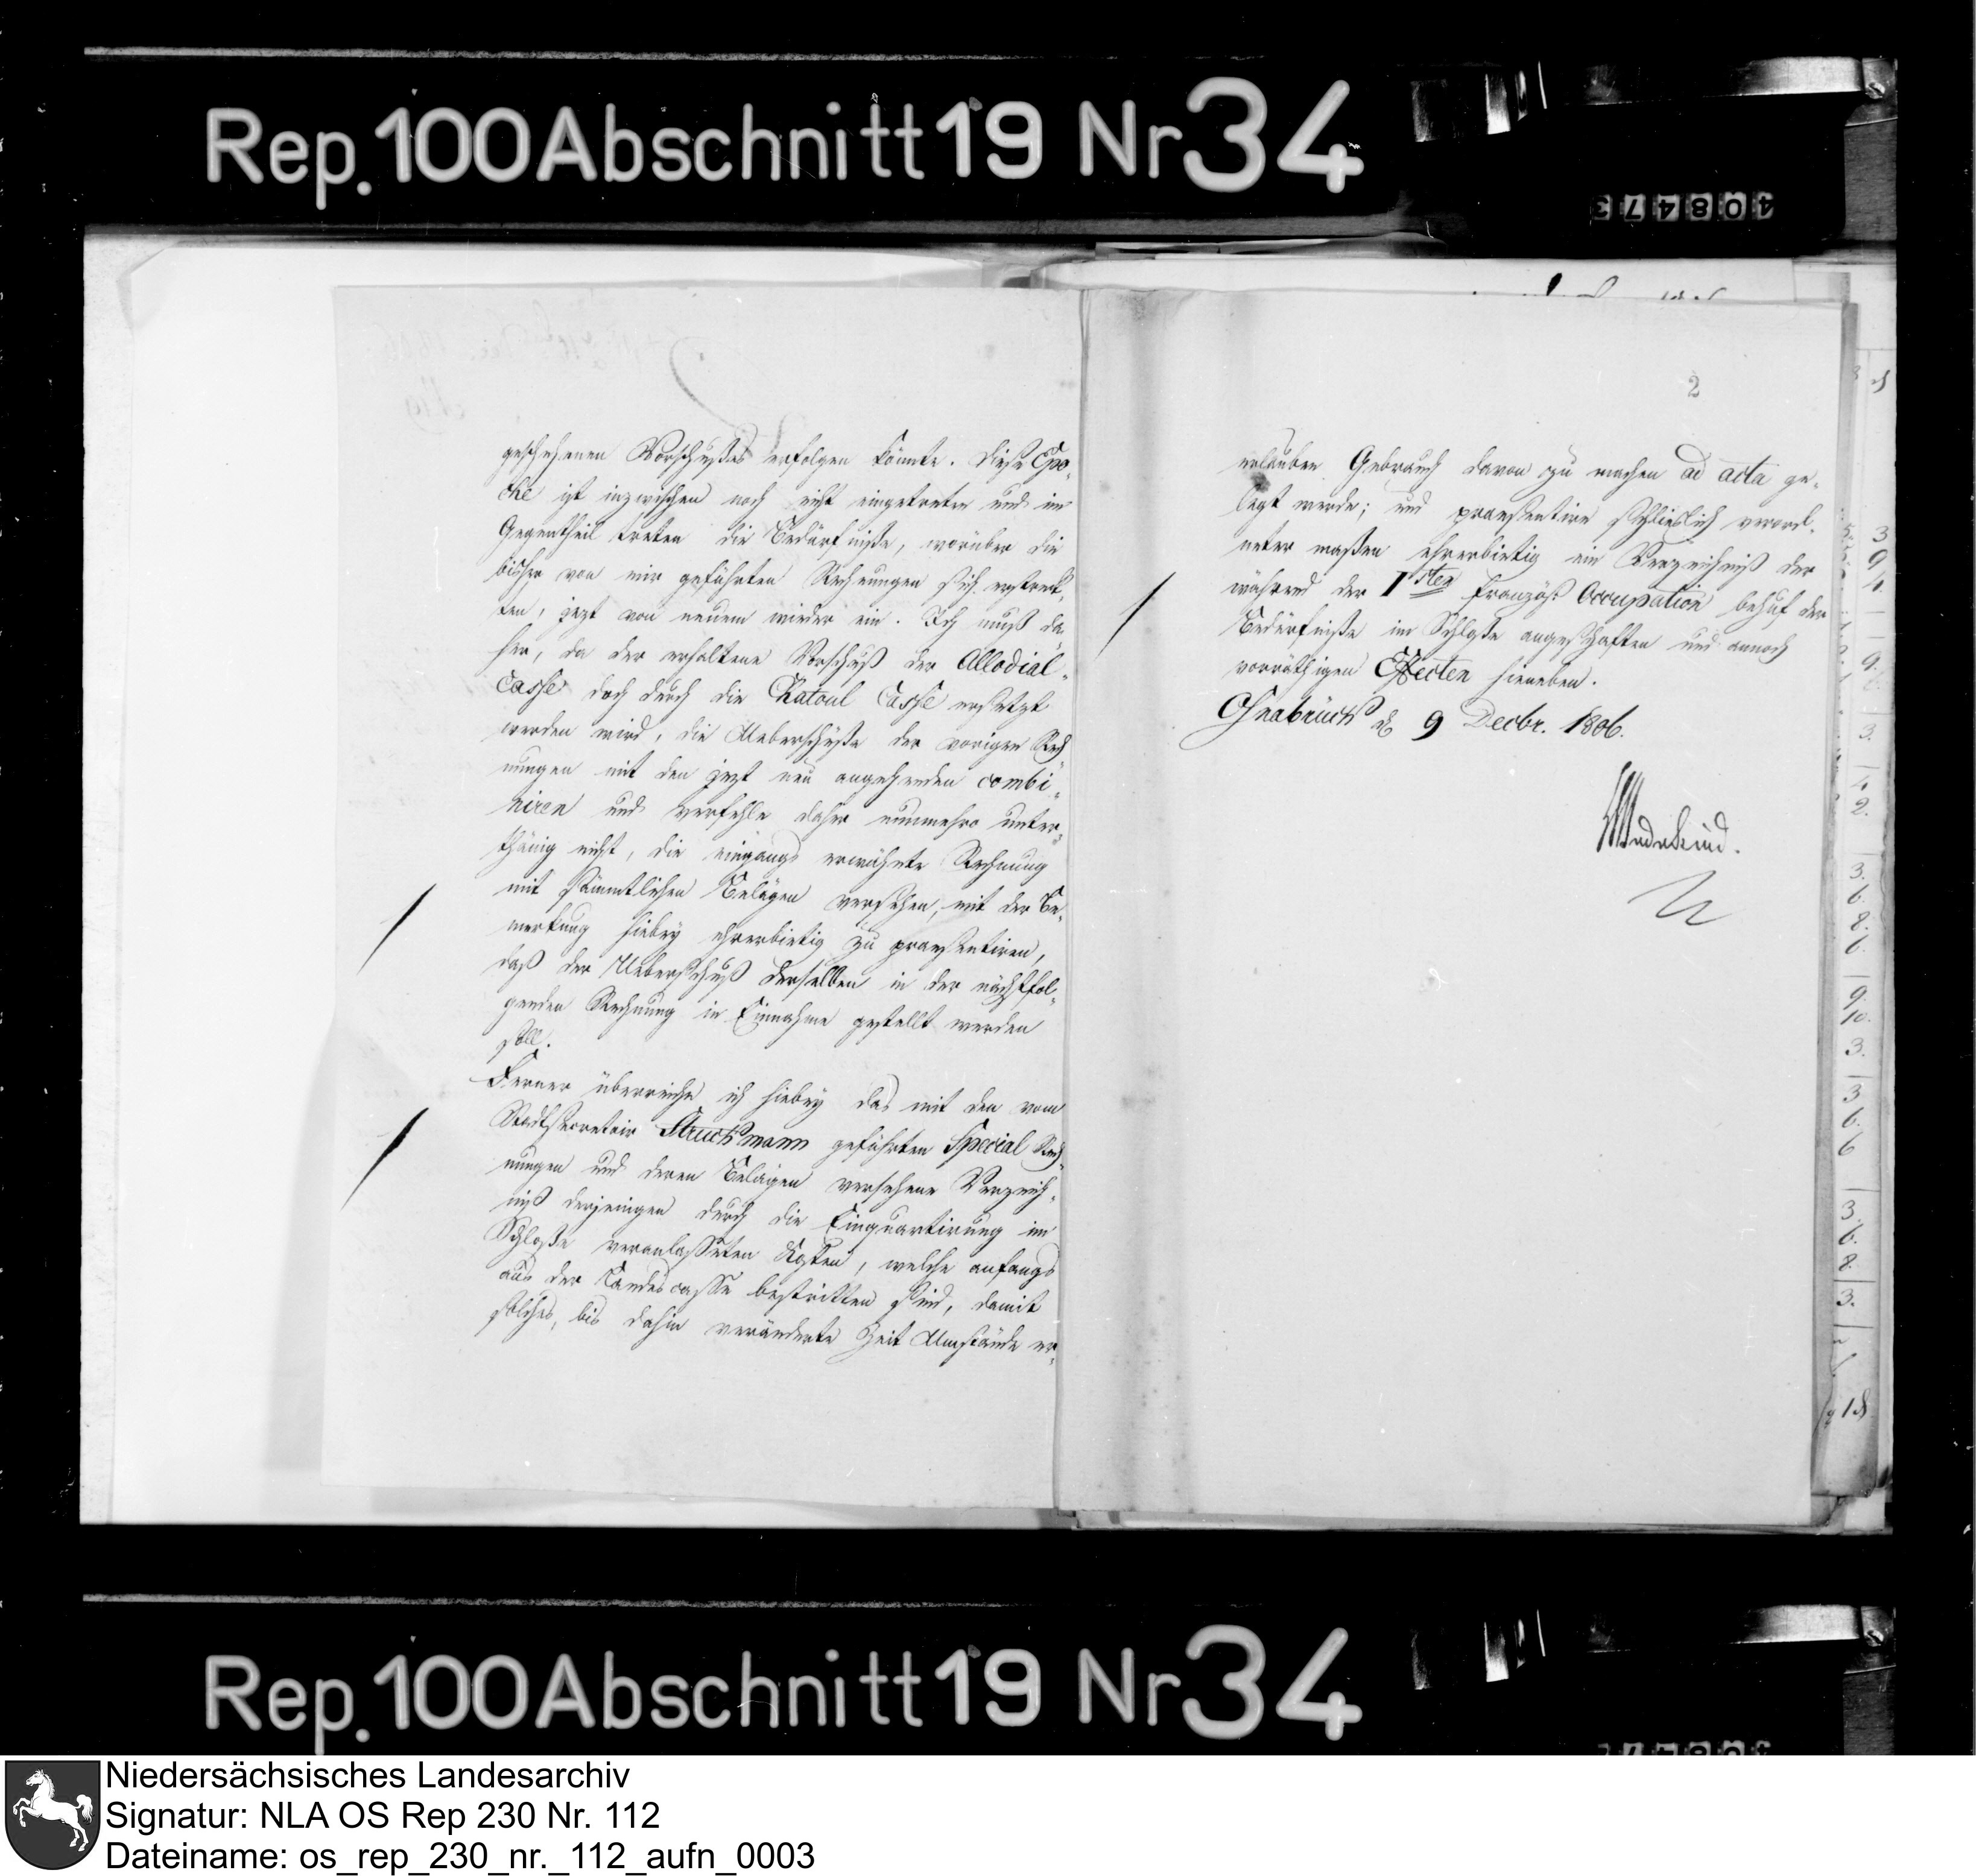 Rep. 100 Abschnitt 19 Nr 34
408473
geschehenen Vorschußes erfolgen könnte. Diese Epo-
che ist inzwischen noch nicht eingetreten und im
Gegentheil treten die Bedürfniße, worüber die
bisher von mir geführten Rechnungen sich erstreck-
ten, jezt von neuem wieder ein. Ich muß da
her, da der erhaltene Vorschuß der Allodial-
Casse doch durch die Chatoul Casse ersetzt
werden wird, die Ueberschüße der vorigen Rech
nungen mit den jezt neu angehenden combi-
niren und verfehle daher nunmehro unter-
thänig nicht, die eingangs erwähnte Rechnung
mit sämmtlichen Belägen versehen, mit der Be-
merkung hiebey ehrerbietig zu praesentiren,
daß der Ueberschuß derselben in der nächstfol-
genden Rechnung in Einnahme gestellt werden
soll.
Ferner überreiche ich hiebey das mit den vom
Stadtsecretair Struckmann geführten Special Rech-
nungen und deren Belägen versehene Verzeich-
niß derjenigen durch die Einquartirung im
Schloße veranlasseten Kosten, welche anfangs
aus der Landescasse bestritten sind, damit
solches, bis dahin veränderte Zeit Umstände er-
2
erlauben Gebrauch davon zu machen ad acta ge-
legt werde; und praesentire schlieslich verord-
neter maßen ehrerbietig ein Verzeichniß der
während der 1sten Französ. Occupation behuf der
Bedürfniße im Schloße angeschaften und annoch
vorräthigen Effecten hieneben.
Osnabrück d. 9 Decbr. 1806.
Wedekind.
Rep. 100 Abschnitt 19 Nr 34
Niedersächsisches Landesarchiv
Signatur: NLA OS Rep 230 Nr. 112
Dateiname: os_rep_230_nr._112_aufn_0003